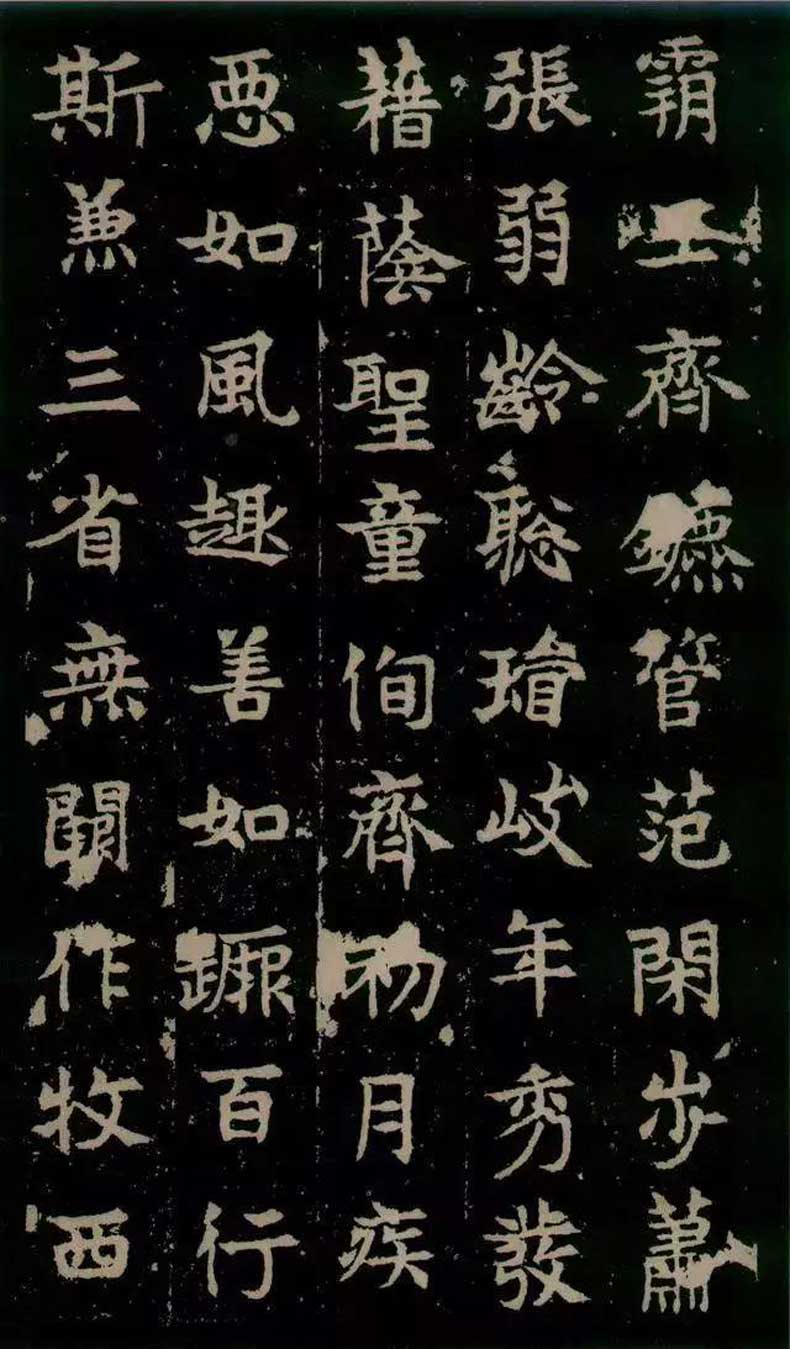 霸王齊鑣管范閑步蕭
張弱齡聡璿岐年秀發
藉蔭聖童侚齊初月疾
惡如風趣善如蹶百行
斯兼三省無闕作牧西